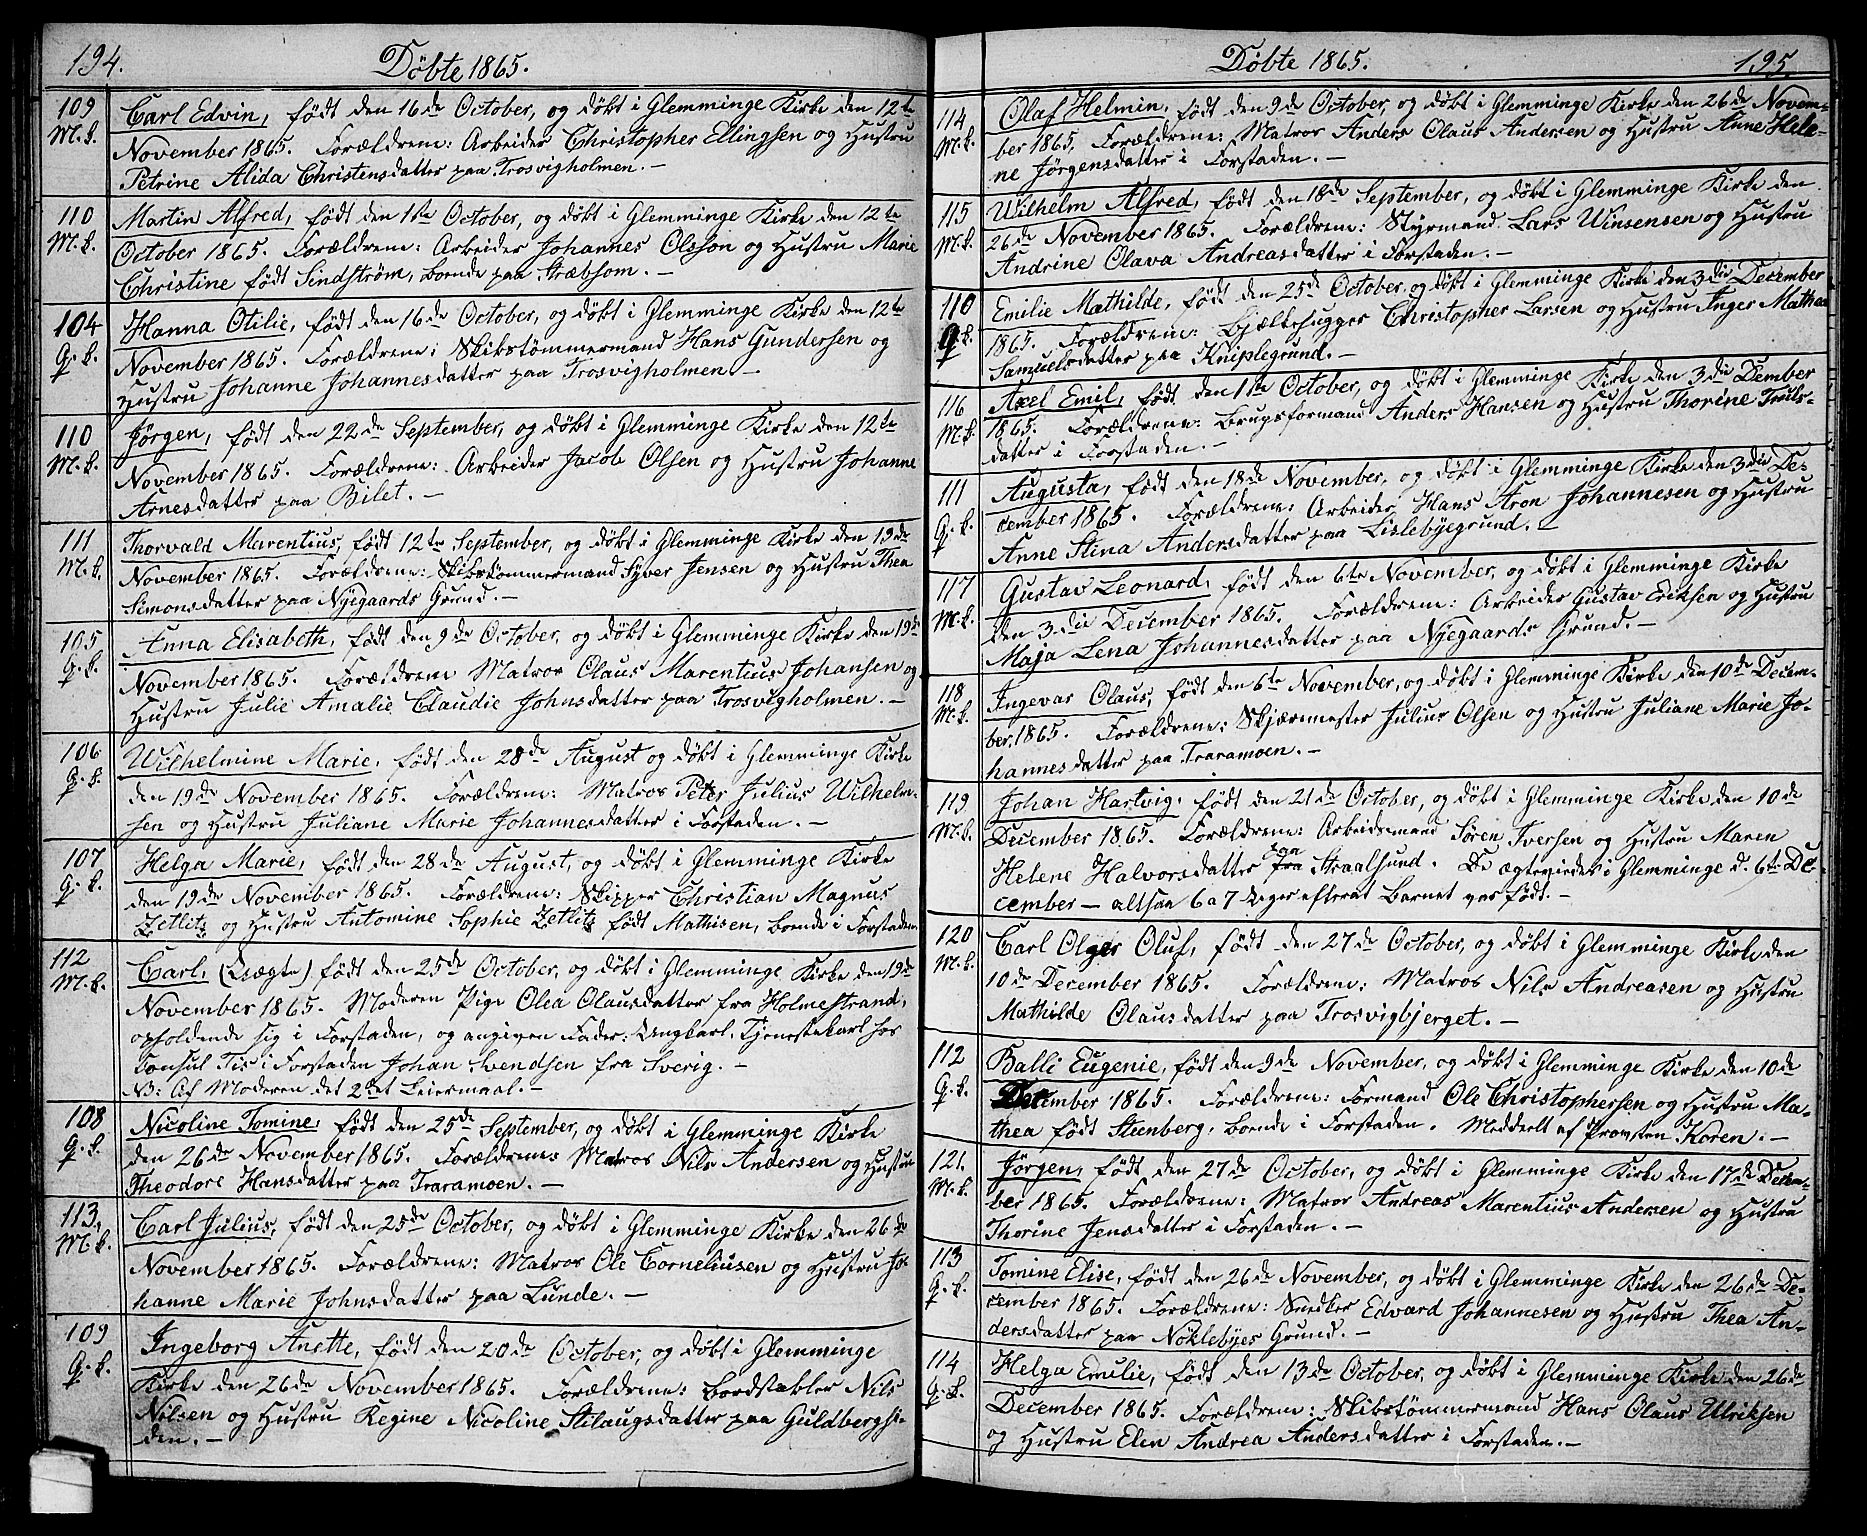 194.
Døbte 1865.
109
M.k.
Carl Edvin, født den 16de October, og døbt i Glemminge Kirke den 12te
November 1865. Forældrene: Arbeider Christopher Ellingsen og Hustru
Petrine Alida Christensdatter paa Trosvigholmen. –
110
M.k.
Martin Alfred, født den 1ste October, og døbt i Glemminge Kirke den 12te
October 1865. Forældrene: Arbeider Johannes Olsson og Hustru Marie
Christine født Lindström, boende paa
104
Q.k.
Hanna Otilie, født den 16de October, og døbt i Glemminge Kirke den 12te
November 1865. Forældrene: Skibstømmermand Hans Gundersen og
Hustru Johanne Johannesdatter paa Trosvigholmen –
110
M.k.
Jørgen, født den 22de September, og døbt i Glemminge Kirke den 12te
November 1865. Forældrene: Arbeider Jacob Olsen og Hustru Johanne
Arnesdatter paa Bilet. –
111
M.k.
Thorvald Marentius, født 12te September, og døbt i Glemminge Kirke den 19de
November 1865. Forældrene: Skibstømmermand Syver Jensen og Hustru Thea
Simonsdatter paa Nyegaards Grund. –
105
Q.k.
Anna Elisabeth, født den 9de October, og døbt i Glemminge Kirke den 19de
November 1865. Forældrene Matros Claus Marentius Johansen og
Hustru Julie Amalie Claudie Johnsdatter paa Trosvigholmen. –
106
Q.k.
Wilhelmine Marie, født den 28de August og døbt i Glemminge Kirke
den 19de November 1865. Forældrene: Matros Peter Julius Wilhelm-
sen og Hustru Juliane Marie Johannesdatter i Forstaden. –
107
Q.k.
Helga Marie, født den 28de August, og døbt i Glemminge Kirke
den 19de November 1865. Forældrene: Skipper Christian Magnus
Zetlitz og Hustru Antomine Sophie Zetlitz født Mathisen, boende i Forstaden
112
M.k.
Carl, (Uægte) født den 25de October, og døbt i Glemminge Kirke den 19de
November 1865. Moderen Pige Olea Olausdatter fra Holmestrand,
opholdende sig i Forstaden, og angiven Fader: Ungkarl, Tjenestekarl hos
Consul Tis i Forstaden Johan Svendsen fra Sverig. –
NB: Af Moderen det 2det Leiermaal. –
108
Q.k.
Nicoline Tomine, født den 25de September, og døbt i Glemminge Kirke
den 26de November 1865. Forældrene Matros Nils Andersen og Hustru
Theodore Hansdatter paa Traramoen. –
113.
M.k.
Carl Julius, født den 25de October, og døbt i Glemminge Kirke den 26de
November 1865. Forældrene: Matros Ole Corneliusen og Hustru Jo-
hanne Marie Johnsdatter paa Lunde. –
109
Q.k.
Ingeborg Anette, født den 20de October, og døbt i Glemminge
Kirke den 26de November 1865. Forældrene: Bordstabler Nils
Nilsen og Hustru Regine Nicoline Stilaugsdatter paa Guldbergsi-
den. –
Døbte 1865.
195.
114
M.k.
Olaf Helmin, født den 9de October, og døbt i Glemminge Kirke den 26de Novem-
ber 1865. Forældrene: Matros Anders Olaus Andersen og Hustru Anne Hele-
ne Jörgensdatter i Forstaden. –
115
M.k.
Wilhelm Alfred, født den 18de September, og døbt i Glemminge Kirke den
26de November 1865. Forældrene: Styrmand Lars Winsensen og Hustru
Andrine Olava Andreasdatter i Forstaden. –
110
Q.k.
Emilie Mathilde, født den 25de October, og døbt i Glemminge Kirke den 3die December
1865. Forældrene: Bjælkehugger Christopher Larsen og Hustru Inger Mathea
Samuelsdatter paa Kniplegrund. –
116
M.k.
Axel Emil, født den 1ste October, og døbt i Glemminge Kirke den 3die Dember
1865. Forældrene: Brugsformand Anders Hansen og Hustru Thorine Truls-
datter i Forstaden. –
111
Q.k.
Augusta, født den 18de November, og døbt i Glemminge Kirke den 3die De-
cember 1865. Forældrene: Arbeider Hans Aron Johannesen og Hustru
Anne Stina Andersdatter paa Lislebyegrund. –
117
M.k.
Gustav Leonard, født den 6te November, og døbt i Glemminge Kirke
den 3die December 1865. Forældrene: Arbeider Gustav Eriksen og Hustru
Maja Lena Johannesdatter paa Nyegaards Grund. –
118
M.k.
Ingevar Olaus, født den 6te November, og døbt i Glemminge Kirke den 10de Decem-
ber 1865. Forældrene: Skjærmester Julius Olsen og Hustru Juliane Marie Jo-
hannesdatter paa Traramoen. –
119
M.k.
Johan Hartvig, født den 21de October, og døbt i Glemminge Kirke den 10de
December 1865. Forældrene: Arbeidsmand Sören Iversen og Hustru Maren
Helene Halvorsdatter fra paa Straalsund. De ægteviedes i Glemminge d. 6te De-
cember – altsaa 6 a 7 Uger efterat Barnet var født. –
120
M.k.
Carl Olger Oluf, født den 27de October, og døbt i Glemminge Kirke den
10de December 1865. Forældrene: Matros Nils Andreasen og Hustru
Mathilde Olausdatter paa Trosvigbjerget. –
112
Q.k.
Balli Eugenie, født den 9de November, og døbt i Glemminge Kirke den 10de
December 1865. Forældrene: Formand Ole Christophersen og Hustru Ma-
thea født Steenberg, boende i Forstaden. Meddeelt af Provsten Koren. –
121.
M.k.
Jørgen, født den 27de October, og døbt i Glemminge Kirke den 17de Decem-
ber 1865. Forældrene: Matros Andreas Marentius Andersen og Hustru
Thorine Jensdatter i Forstaden. –
113
Q.k.
Tomine Elise, født den 26de November, og døbt i Glemminge Kirke den 26de De-
cember 1865. Forældrene: Snedker Edvard Johannesen og Hustru Thea An-
dersdatter paa Nöklebyes Grund. –
114
Q.k.
Helga Emilie, født den 13de October, og døbt i Glemminge Kirke den 26de
December 1865. Forældrene: Skibstømmermand Hans Olaus Ulriksen
og Hustru Elen Andrea Andersdatter i Forstaden. –